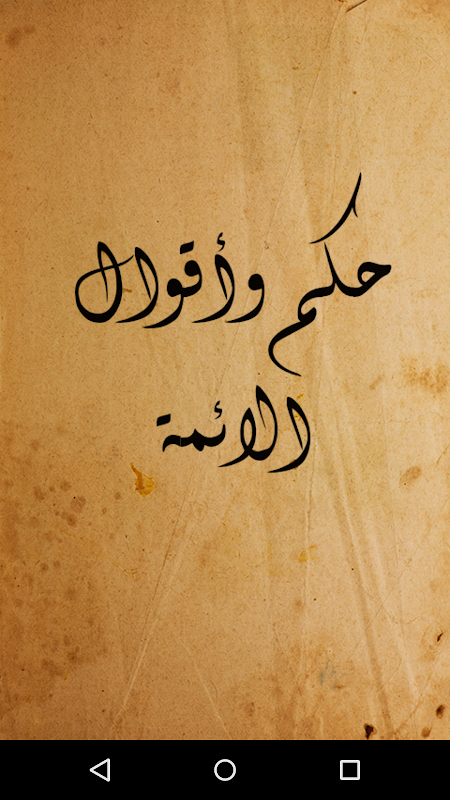 حكم وأقوال
الائمة